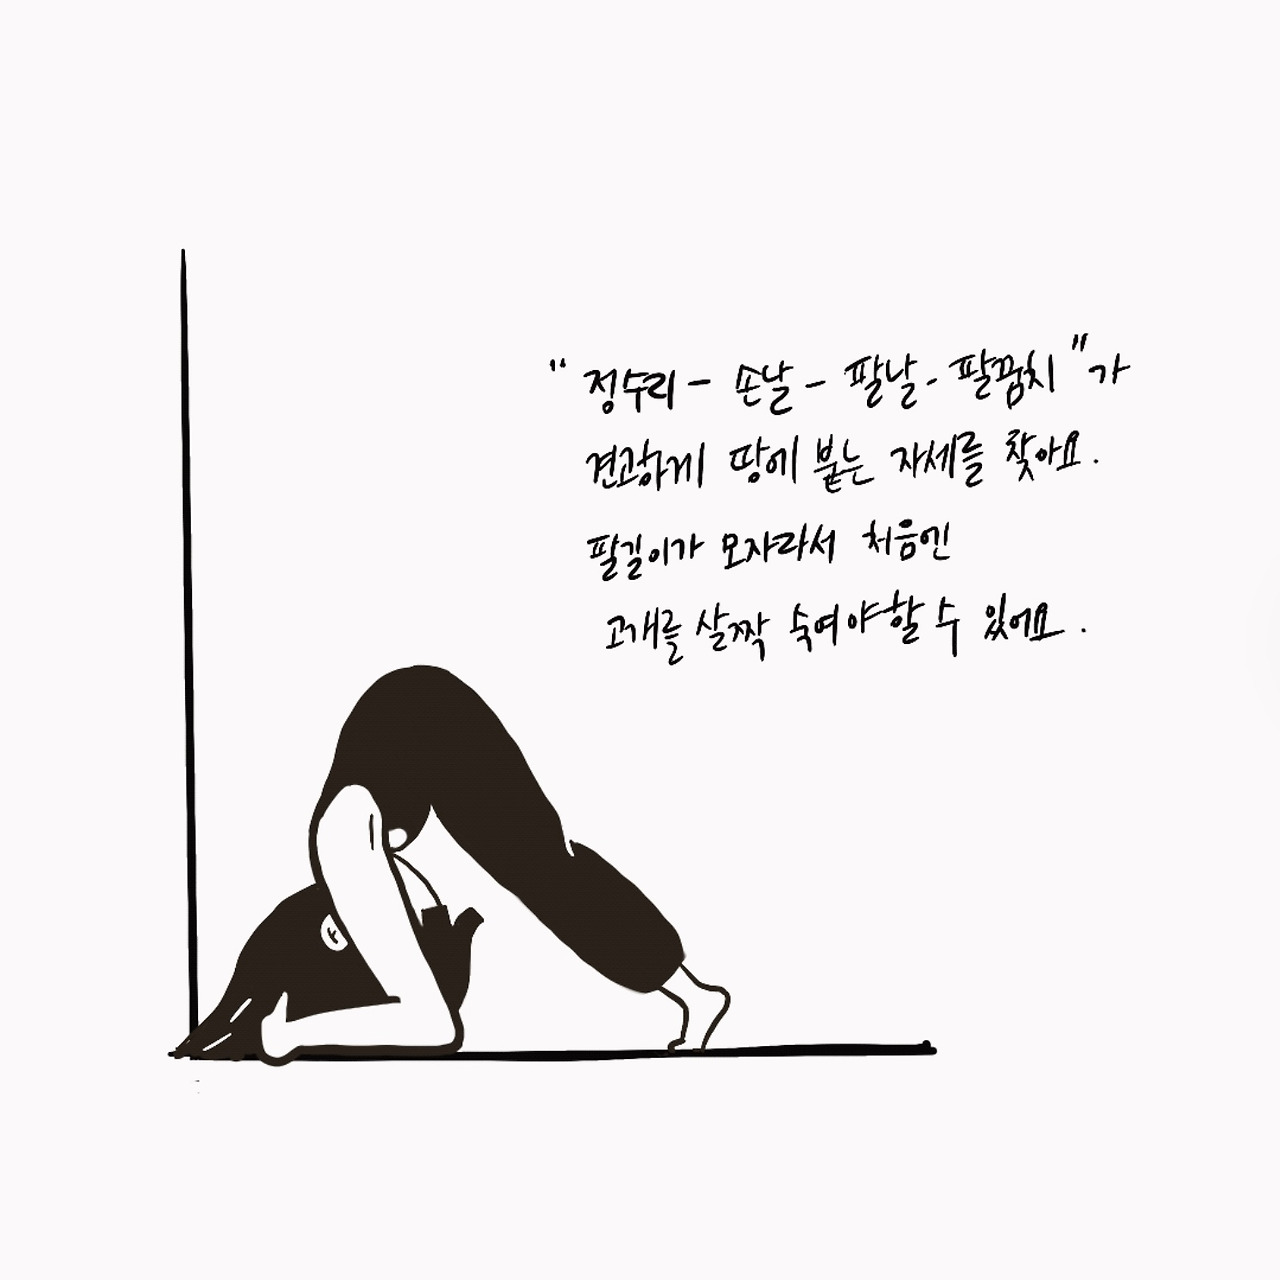 "정수리 - 손날 - 팔날 - 팔꿈치"가
견고하게 땅에 붙는 자세를 찾아요.
팔길이가 모자라서 처음엔
고개를 살짝 숙여야할 수 있어요.